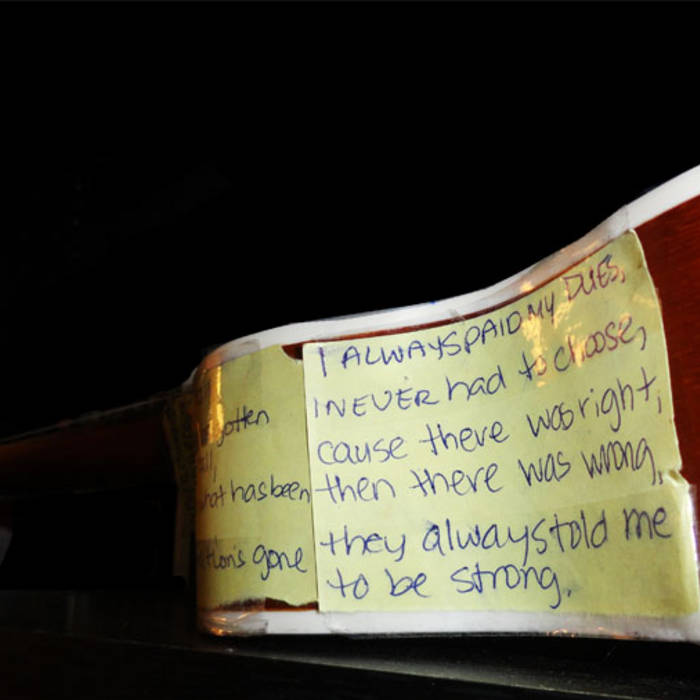 gotten
what has been
gone
I ALWAYS PAID MY DUES,
I NEVER had to choose,
cause there was right,
then there was wrong,
they always told me
to be strong.